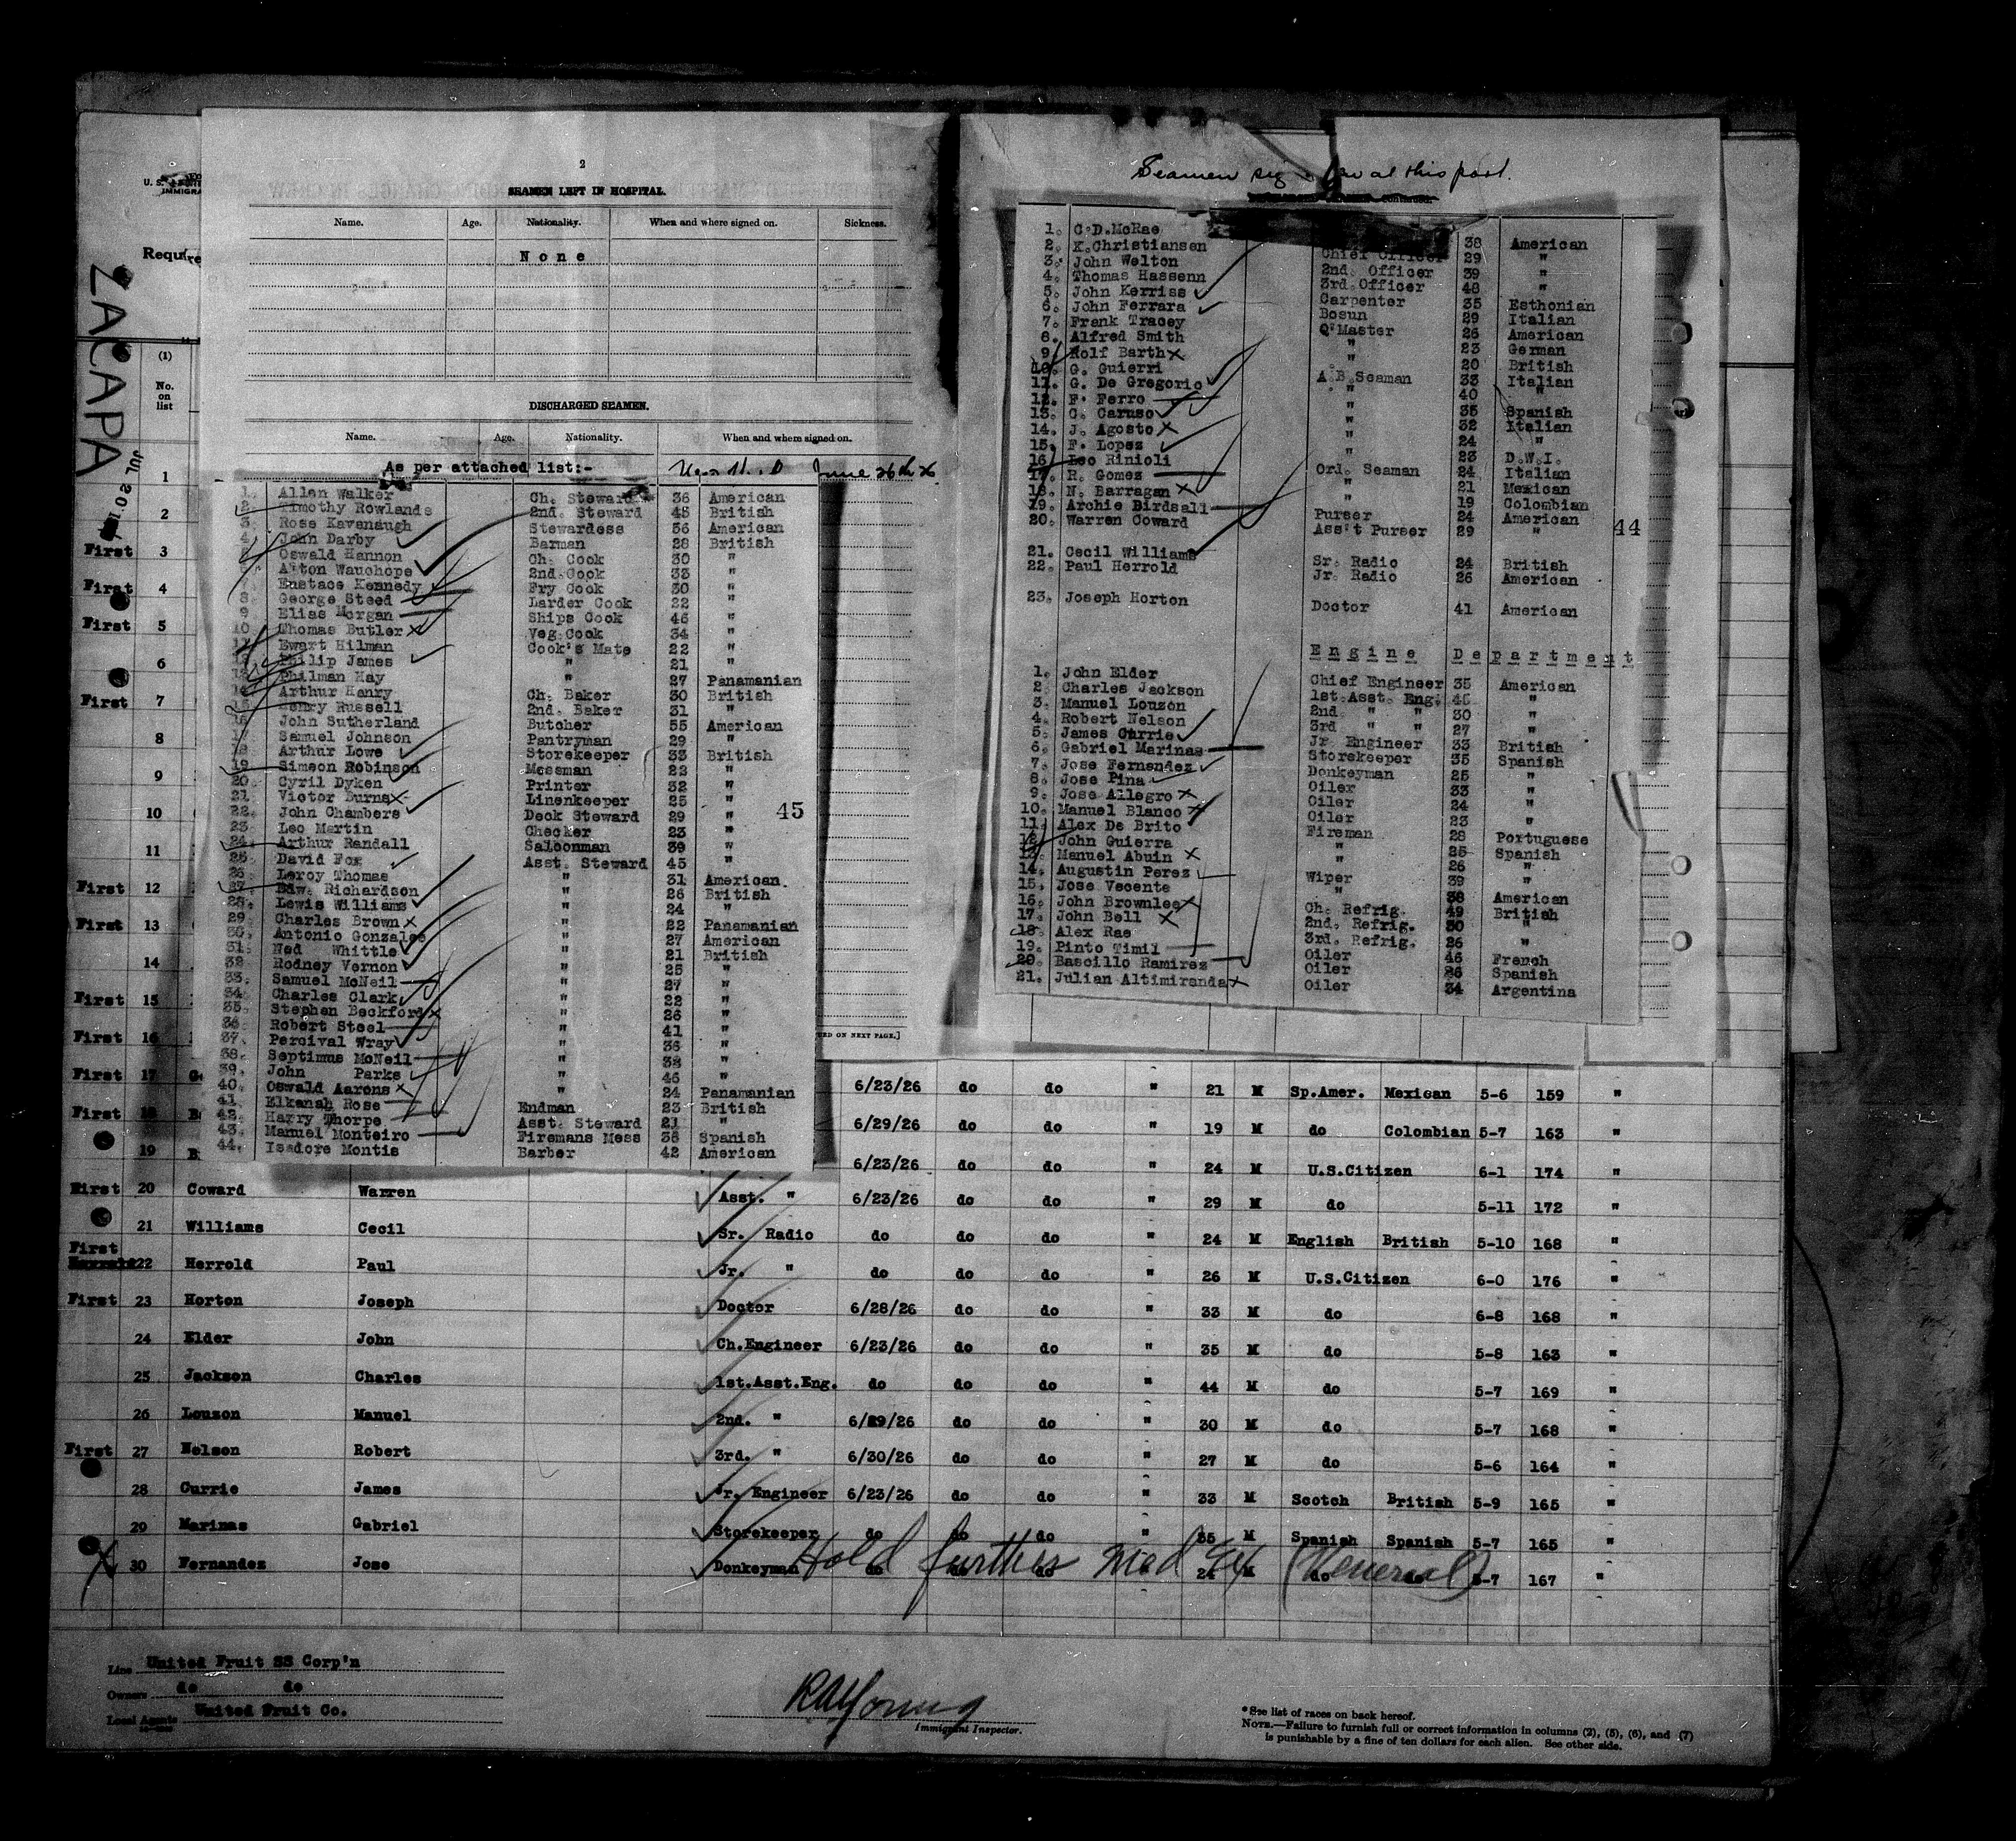 2
SEAMEN LEFT IN HOSPITAL.
Name. Age. Nationality. When and where signed on. Sickness.
None
DISCHARGED SEAMEN.
Name. Age. Nationality. When and where signed on.
As per attached list:- June 26th
1. Allen Walker Ch. Steward 36 American
2. Timothy Rowlands 2nd. Steward 45 British
3. Rose Kavenaugh Stewardess 56 American
4. John Darby Barman 28 British
5. Oswald Hannon Ch. Cook 30 "
6. Aiton Wauchope 2nd.Cook 33 "
7. Eustace Kennedy Fry Cook 30 "
8. George Steed Larder Cook 22 "
9. Elias Morgan Ships Cook 46 "
10. Thomas Butler Veg.Cook 34 "
11. Ewart Hilman Cook's Mate 22 "
12. Philip James " 21 "
13. Philman May " 27 Panamanian
14. Arthur Henry Ch. Baker 30 British
15. Henry Russell 2nd. Baker 31 "
16. John Sutherland Butcher 55 American
17. Samuel Johnson Pantryman 29 "
18. Arthur Lowe Storekeeper 33 British
19. Simeon Robinson Messman 22 "
20. Cyril Dyken Printer 32 "
21. Victor Burns Linenkeeper 25 "
22. John Chambers Deck Steward 29 "
45
23. Leo Martin Checker 23 "
24. Arthur Randall Saloonman 39 "
25. David Fox Asst. Steward 45 "
26. Leroy Thomas " 31 American.
27. Edw. Richardson " 26 British
28. Lewis Williams " 24 "
29. Charles Brown " 22 Panamanian
30. Antonio Gonzales " 27 American
31. Ned Whittle " 21 British
32 Rodney Vernon " 25 "
33. Samuel McNeil " 27 "
34. Charles Clark " 22 "
35. Stephen Beckford " 26 "
36. Robert Steel " 41 "
37. Percival Wray " 36 "
38. Septimus McNeil " 38 "
39. John Parks " 46 "
40. Oswald Aarons " 24 Panamanian
41. Elkanah Rose Endman 23 British
42. Harry Thorpe Asst. Steward 21 "
43. Manuel Monteiro Firemans Mess 36 Spanish
44. Isadore Montis Barber 42 American
Seamen at this port.
1. C.D.McRae
2. K.Christiansen Chief Officer 38 American
3. John Welton 2nd. Officer 29 "
4. Thomas Hassenn 3rd.Officer 39 "
5. John Kerriss Carpenter 48 "
6. John Ferrara Bosun 35 Esthonian
7. Frank Tracey Q'Master 29 Italian
8. Alfred Smith " 26 American
9. Rolf Barth " 23 German
10. G. Guierri A.B.Seaman 20 British
11. G. De Gregorio " 33 Italian
12. F. Ferro " 40 "
13. C. Caruso " 35 Spanish
14. J. Agosto " 32 Italian
15. F. Lopez " 24 "
16. Leo Rinioli Orl. Seaman 23 D.W.I.
17. R. Gomez " 24 Italian
18. N. Barragan " 21 Mexican
19. Archie Birdsall Purser 19 Colombian
20. Warren Coward Ass't Purser 24 American
29 "
44
21. Cecil Williams Sr. Radio 24 British
22. Paul Herrold Jr. Radio 26 American
23. Joseph Horton Doctor 41 American
Engine Department
1. John Elder Chief Engineer 35 American
2. Charles Jackson 1st.Asst. Eng. 45 "
3. Manuel Louzon 2nd. " " 30 "
4. Robert Nelson 3rd. " " 27 "
5. James Currie Jr. Engineer 33 British
6. Gabriel Marinas Storekeeper 35 Spanish
7. Jose Fernandez Donkeyman 25 "
8. Jose Pina Oiler 33 "
9. Jose Allegro Oiler 24 "
10. Manuel Blanco Oiler 23 "
11. Alex De Brito Fireman 28 Portuguese
12. John Guierra " 25 Spanish
13. Manuel Abuin " 26 "
14. Augustin Perez Wiper 39 "
15. Jose Vecente " 38 American
16. John Brownlee Ch. Refrig. 49 British
17. John Bell 2nd. Refrig. 30 "
18. Alex Rae 3rd. Refrig. 26 "
19. Pinto Timil Oiler 46 French
20. Bascillo Ramirez Oiler 26 Spanish
21. Julian Altimiranda Oiler 34 Argentina
ZACAPA
(1)
No. on list
1
2
First 3
First 4
First 5
6
First 7
8
9
10
11
First 12
First 13
14
First 15
First 16
First 17 6/23/26 do do " 21 M Sp.Amer. Mexican 5-6 159 "
First 18 6/29/26 do do " 19 M do Colombian 5-7 163 "
19 6/23/26 do do " 24 M U.S.Citizen 6-1 174 "
First 20 Coward Warren Asst. " 6/23/26 do do " 29 M do 5-11 172 "
21 Williams Cecil Sr. Radio do do do " 24 M English British 5-10 168 "
First 22 Herrold Paul Jr. " do do do " 26 M U.S.Citizen 6-0 176 "
First 23 Horton Joseph Doctor 6/28/26 do do " 33 M do 6-8 168 "
24 Elder John Ch.Engineer 6/23/26 do do " 35 M do 5-8 163 "
25 Jackson Charles 1st.Asst.Eng. do do do " 44 M do 5-7 169 "
26 Louzon Manuel 2nd. " 6/29/26 do do " 30 M do 5-7 168 "
First 27 Nelson Robert 3rd. " 6/30/26 do do " 27 M do 5-6 164 "
28 Currie James Jr. Engineer 6/23/26 do do " 33 M Scotch British 5-9 165 "
29 Marinas Gabriel Storekeeper do do do " 35 M Spanish Spanish 5-7 165 "
30 Fernandez Jose Donkeyman do do do " 24 M do do 5-7 167 "
Hold further Med Ex (Venereal)
Line United Fruit SS Corp'n
Owners do do
Local Agents United Fruit Co.
RAYoung
Immigrant Inspector.
*See list of races on back hereof.
NOTE.—Failure to furnish full or correct information in columns (2), (5), (6), and (7)
is punishable by a fine of ten dollars for each alien. See other side.